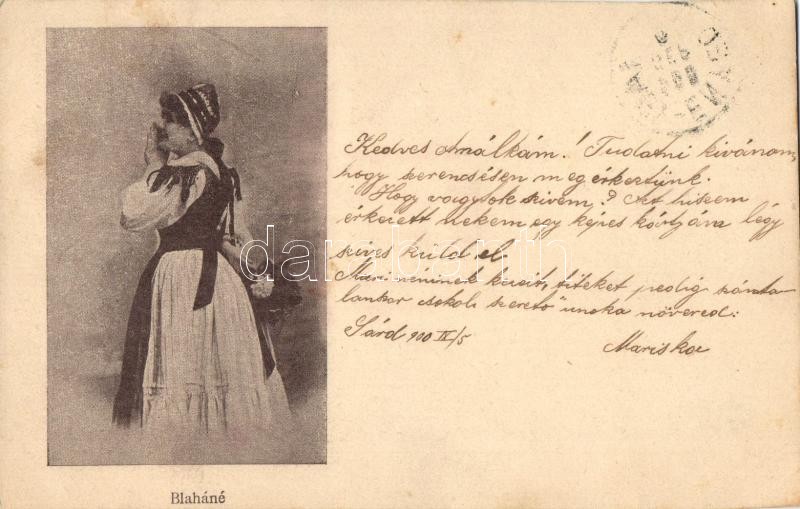 Kedves Amálkám! Tudatni kivánom,
hogy szerencsésen megérkeztünk.
Hogy vagytok szivem? Azt hiszem
érkezett nekem egy képes kártyám légy
szives küld el.
Marineninek kezeit, titeket pedig számta-
lanszor csokol szerető unoka növered:
Sárd 900 IV/5
Mariska
darabanth
Blaháné